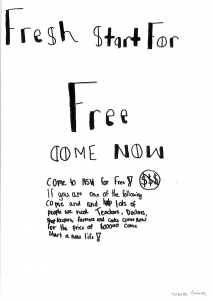 Fresh $tart For
Free
COME NOW
COME to NSW for Free
$$$
If you are one of the following
come and and help lots of
people we need Teachers, Doctors,
farmers and come now
for the price of come
start a new life